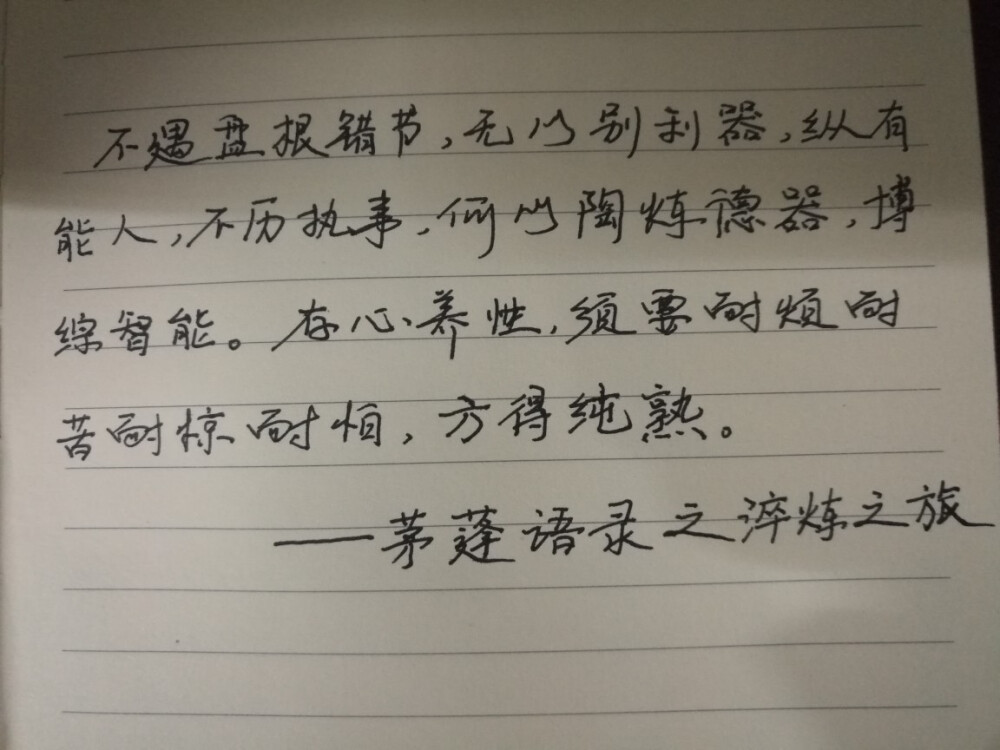 不遇盘根错节,无以别利器,纵有
能人,不历执事,何以陶炼德器,博
综智能。存心养性,须要耐烦耐
苦耐惊耐怕,方得纯熟。
——茅蓬语录之淬炼之旅